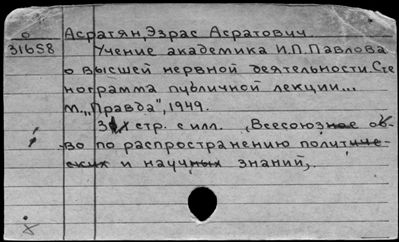 о Асратян, Эзрас Асратович.
31658 Учение академика И.П. Павлова
о высшей нервной деятельности. Сте
нограмма публичной лекции...
М., "Правда", 1949.
стр. с илл. /Всесоюзное об-
во по распространению полити-
ческих и научных знаний/.